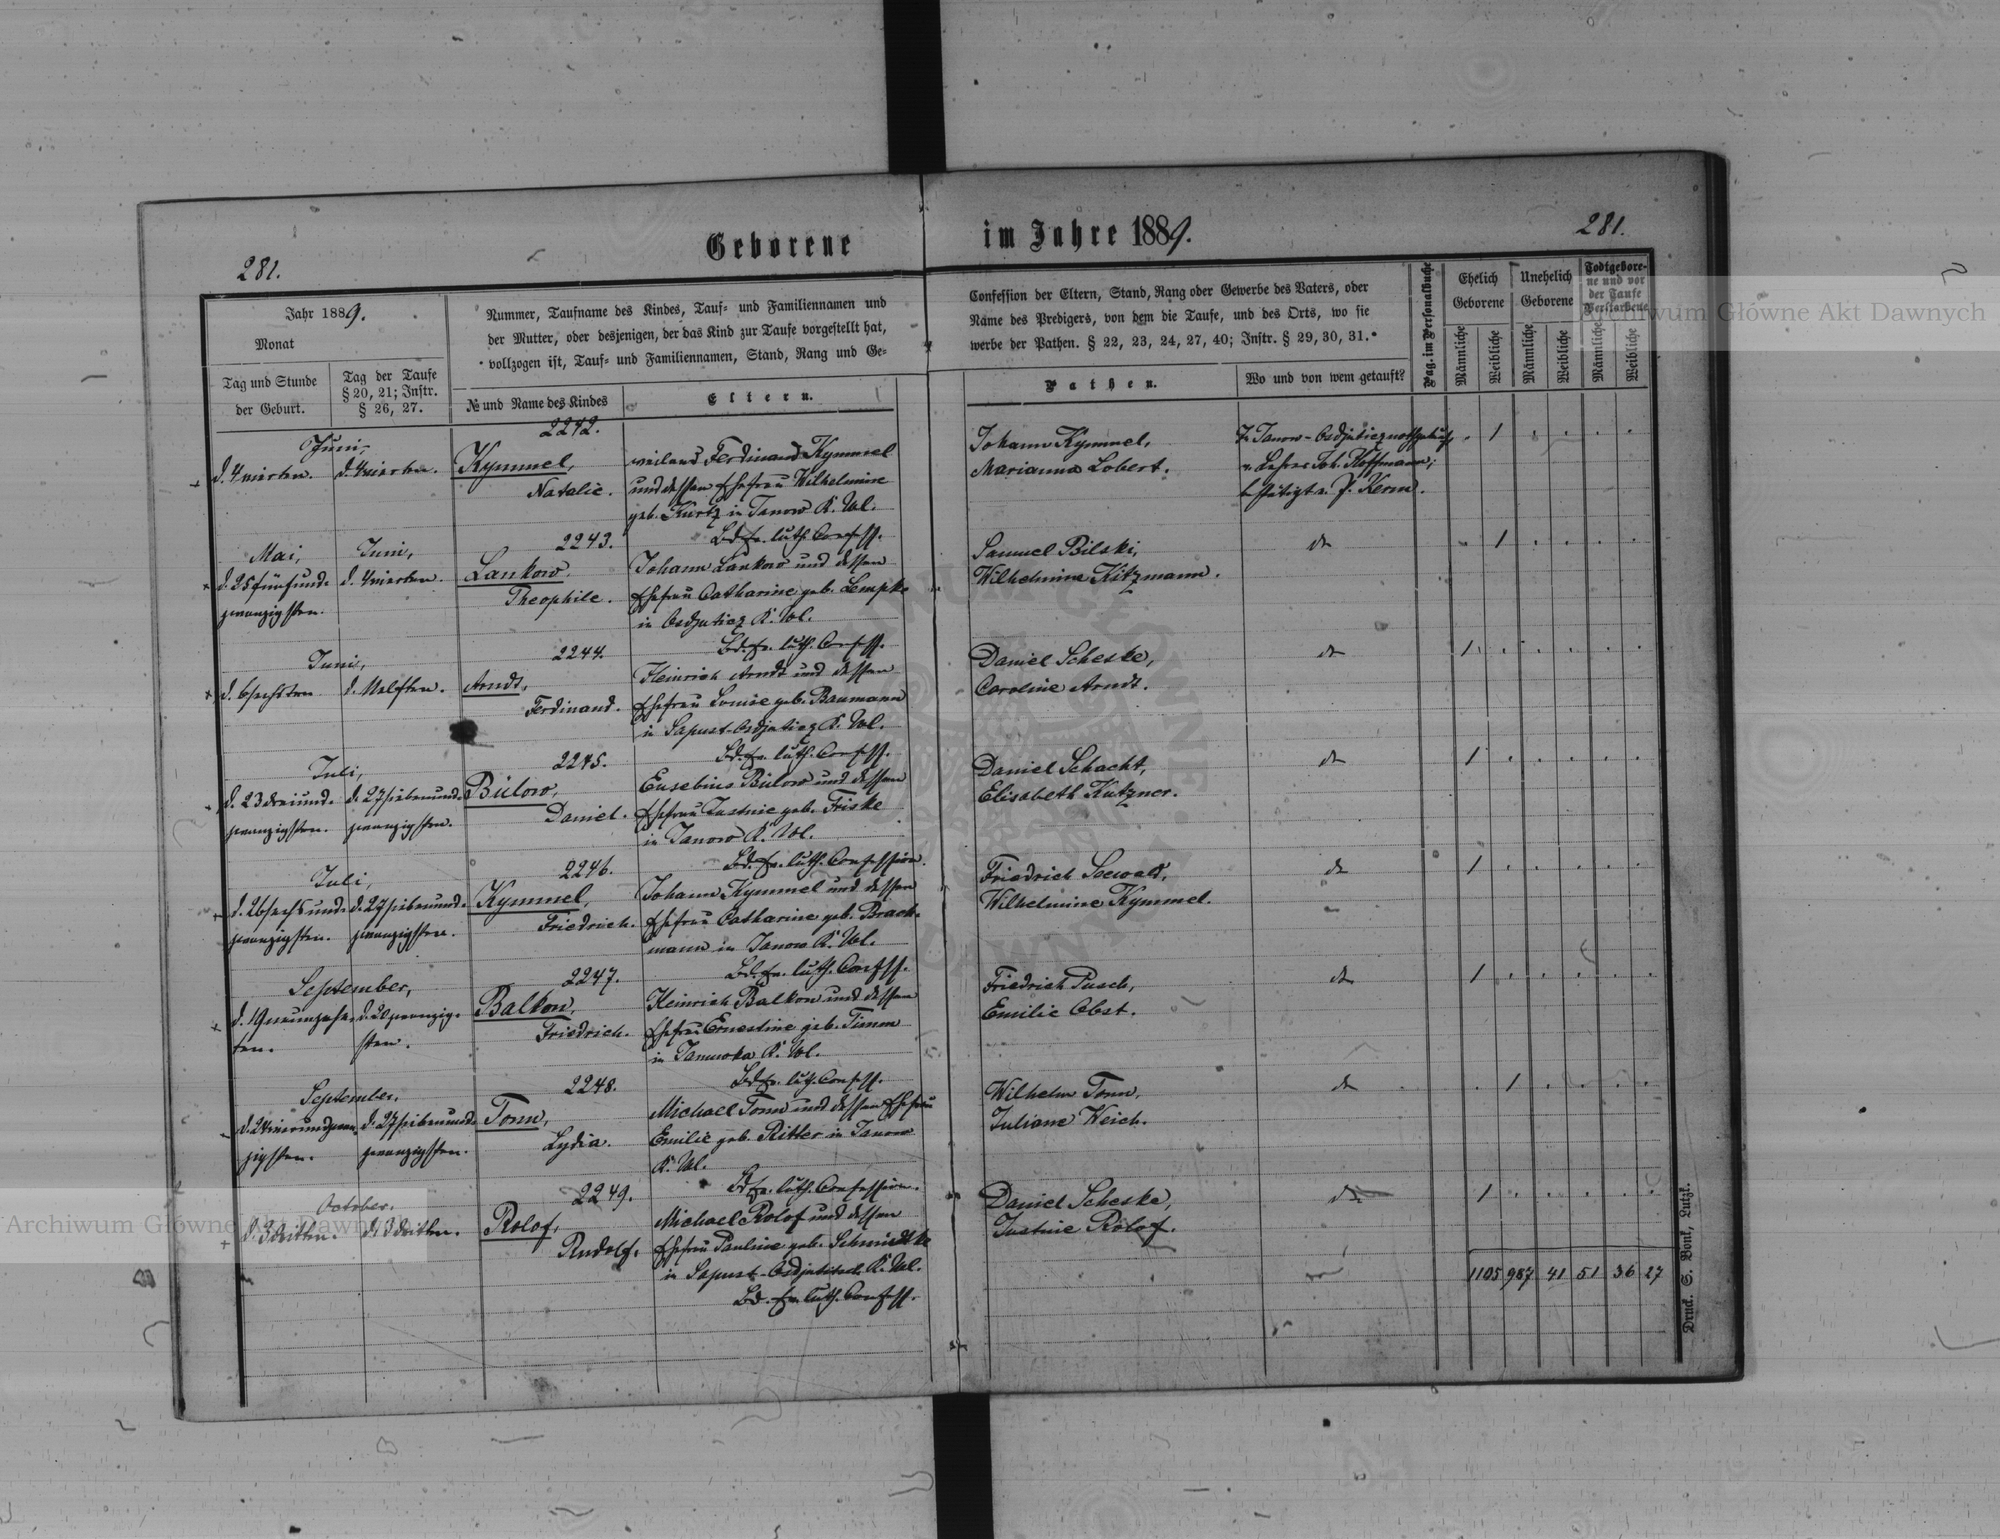 281.
Geborene
im Jahre 1889.
281.
Jahr 1889.
Monat
Tag und Stunde
der Geburt.
Tag der Taufe
§ 20, 21; Instr.
§ 26, 27.
Nummer, Taufname des Kindes, Tauf- und Familiennamen und
der Mutter, oder desjenigen, der das Kind zur Taufe vorgestellt hat,
vollzogen ist, Tauf- und Familiennamen, Stand, Rang und Ge-
№ und Name des Kindes
Eltern.
Confession der Eltern, Stand, Rang oder Gewerbe des Vaters, oder
Name des Predigers, von dem die Taufe, und des Orts, wo sie
werbe der Pathen. § 22, 23, 24, 27, 40; Instr. § 29, 30, 31.
Pathen.
Wo und von wem getauft?
Pag. im Personalbuche
Ehelich
Geborene
Unehelich
Geborene
Todtgebore-
ne und vor
der Taufe
Verstorbene
Männliche
Weibliche
Männliche
Weibliche
Männliche
Weibliche
Juni,
d. 4 vierten. d. 4 vierten.
2242.
Kymmel,
Natalie.
weiland Ferdinand Kymmel
und dessen Ehefrau Wilhelmine
geb. Kurtz in Janow K. Wl.
Bd. Ev. luth. Confess.
Johann Kymmel,
Marianna Lobert.
v. Lehrer Joh. Hoffmann;
bestätigt v. P. Kerm.
1
Mai,
d. 25 fünfund-
zwanzigsten.
Juni,
d. 4 vierten.
2243.
Lankow.
Theophile.
Johann Lankow und dessen
Ehefrau Catharine geb. Lempke
in Osdjuticz K. Wl.
Bd. Ev. luth. Confess.
Samuel Bilski,
Wilhelmine Kitzmann.
do
1
Juni,
d. 6 sechsten d. 11 elften.
2244.
Arndt,
Ferdinand.
Heinrich Arndt und dessen
Ehefrau Louise geb. Baumann
in Sapust-Osdjuticz K. Wl.
Bd. Ev. luth. Confess.
Daniel Scheske,
Caroline Arndt.
do
1
Juli,
d. 23 dreiund-
zwanzigsten.
d. 27 siebenund-
zwanzigsten.
2245.
Bülow,
Daniel.
Eusebius Bülow und dessen
Ehefrau Justine geb. Friske
in Janow K. Wl.
Bd. Ev. luth. Confession.
Daniel Schacht,
Elisabeth Kutzner.
do
1
Juli,
d. 26 sechsund-
zwanzigsten.
d. 27 siebenund-
zwanzigsten.
2246.
Kymmel,
Friedrich.
Johann Kymmel und dessen
Ehefrau Catharine geb. Brach-
mann in Janow K. Wl.
Bd. Ev. luth. Confess.
Friedrich Seewald,
Wilhelmine Kymmel.
do
1
September,
d. 19 neunzehn-
ten.
d. 20 zwanzig-
sten.
2247.
Balkon,
Friedrich.
Heinrich Balkon und dessen
Ehefrau Ernestine geb. Timm
in Janowka K. Wl.
Bd. Ev. luth. Confess.
Friedrich Pusch,
Emilie Obst.
do
1
September.
d. 24 vierundzwan-
zigsten.
d. 27 siebenund-
zwanzigsten.
2248.
Tonn,
Lydia.
Michael Tonn und dessen Ehefrau
Emilie geb. Ritter in Janow
K. Wl.
Bd. Ev. luth. Confession.
Wilhelm Tonn,
Juliane Weich.
do
1
October.
d. 3 dritten. d. 3 dritten.
2249.
Rolof,
Rudolf.
Michael Rolof und dessen
Ehefrau Pauline geb. Schmidtke
in Sapust-Osdjutitsch K. Wl.
Bd. Ev. luth. Confess.
Daniel Scheske,
Justine Rolof.
do
1
1105 987 41 51 36 27
Druck. S. Bonk, Lutzk.
Archiwum Główne Akt Dawnych
Archiwum Główne Akt Dawnych